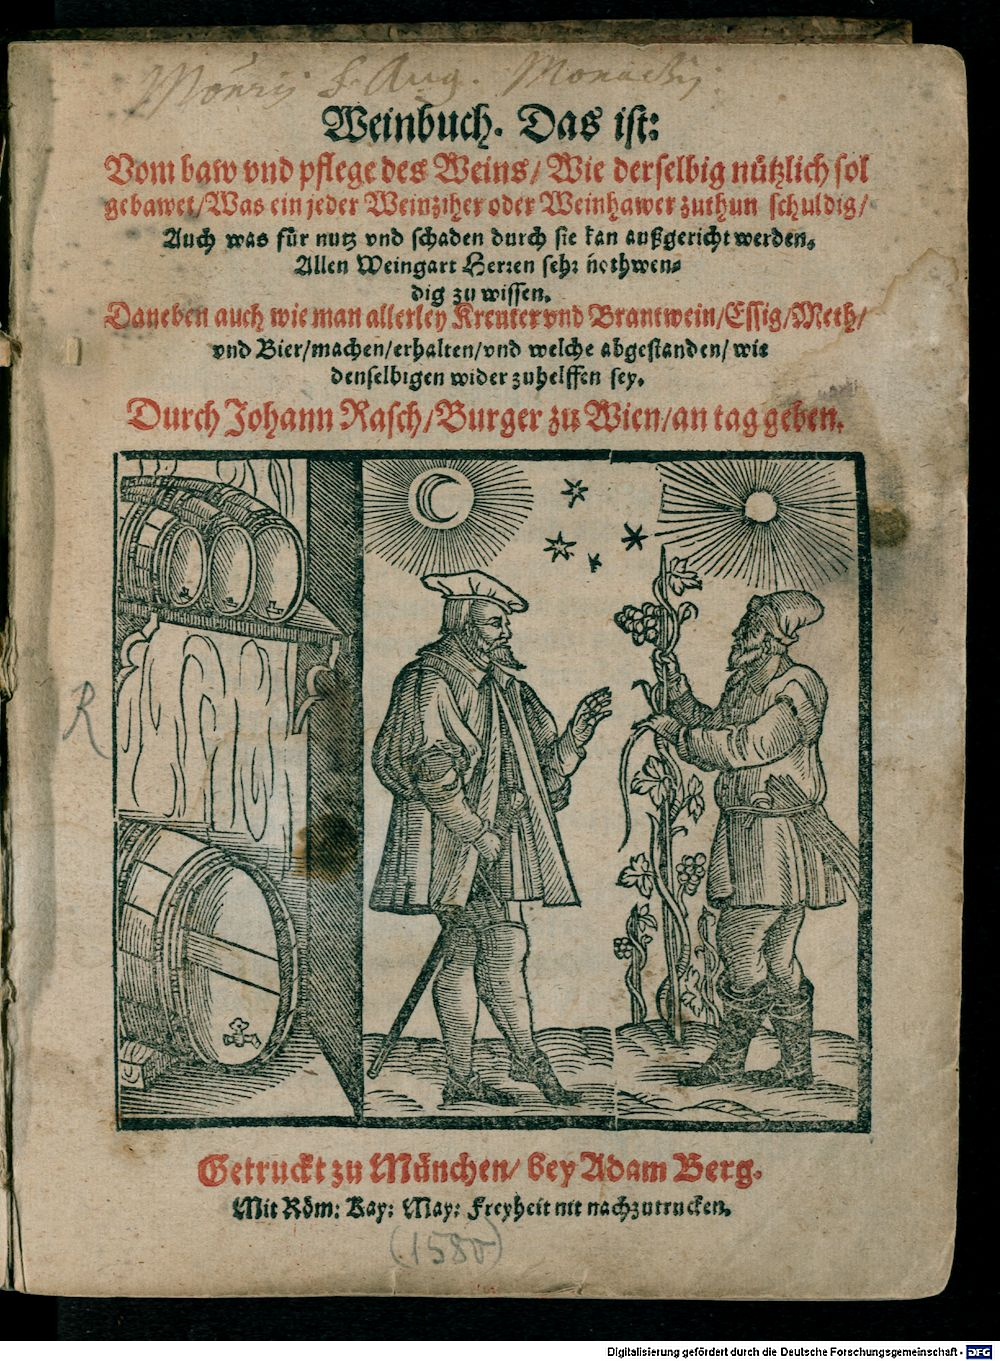 Monrij S. Aug. Monachij.
Weinbuch. Das ist:
Vom baw vnd pflege des Weins/ Wie derselbig nützlich sol
gebawet/ Was ein jeder Weinziher oder Weinhawer zuthun schuldig/
Auch was für nutz vnd schaden durch sie kan außgericht werden.
Allen Weingart Herren sehr nothwen-
dig zu wissen.
Daneben auch wie man allerley Kreuter vnd Brantwein/ Essig/ Meth/
vnd Bier/ machen/ erhalten/ vnd welche abgestanden/ wie
denselbigen wider zuhelffen sey.
Durch Johann Rasch/ Burger zu Wien/ an tag geben.
R
Getruckt zu München/ bey Adam Berg.
Mit Röm: Kay: May: Freyheit nit nachzutrucken.
(1580)
Digitalisierung gefördert durch die Deutsche Forschungsgemeinschaft - DFG